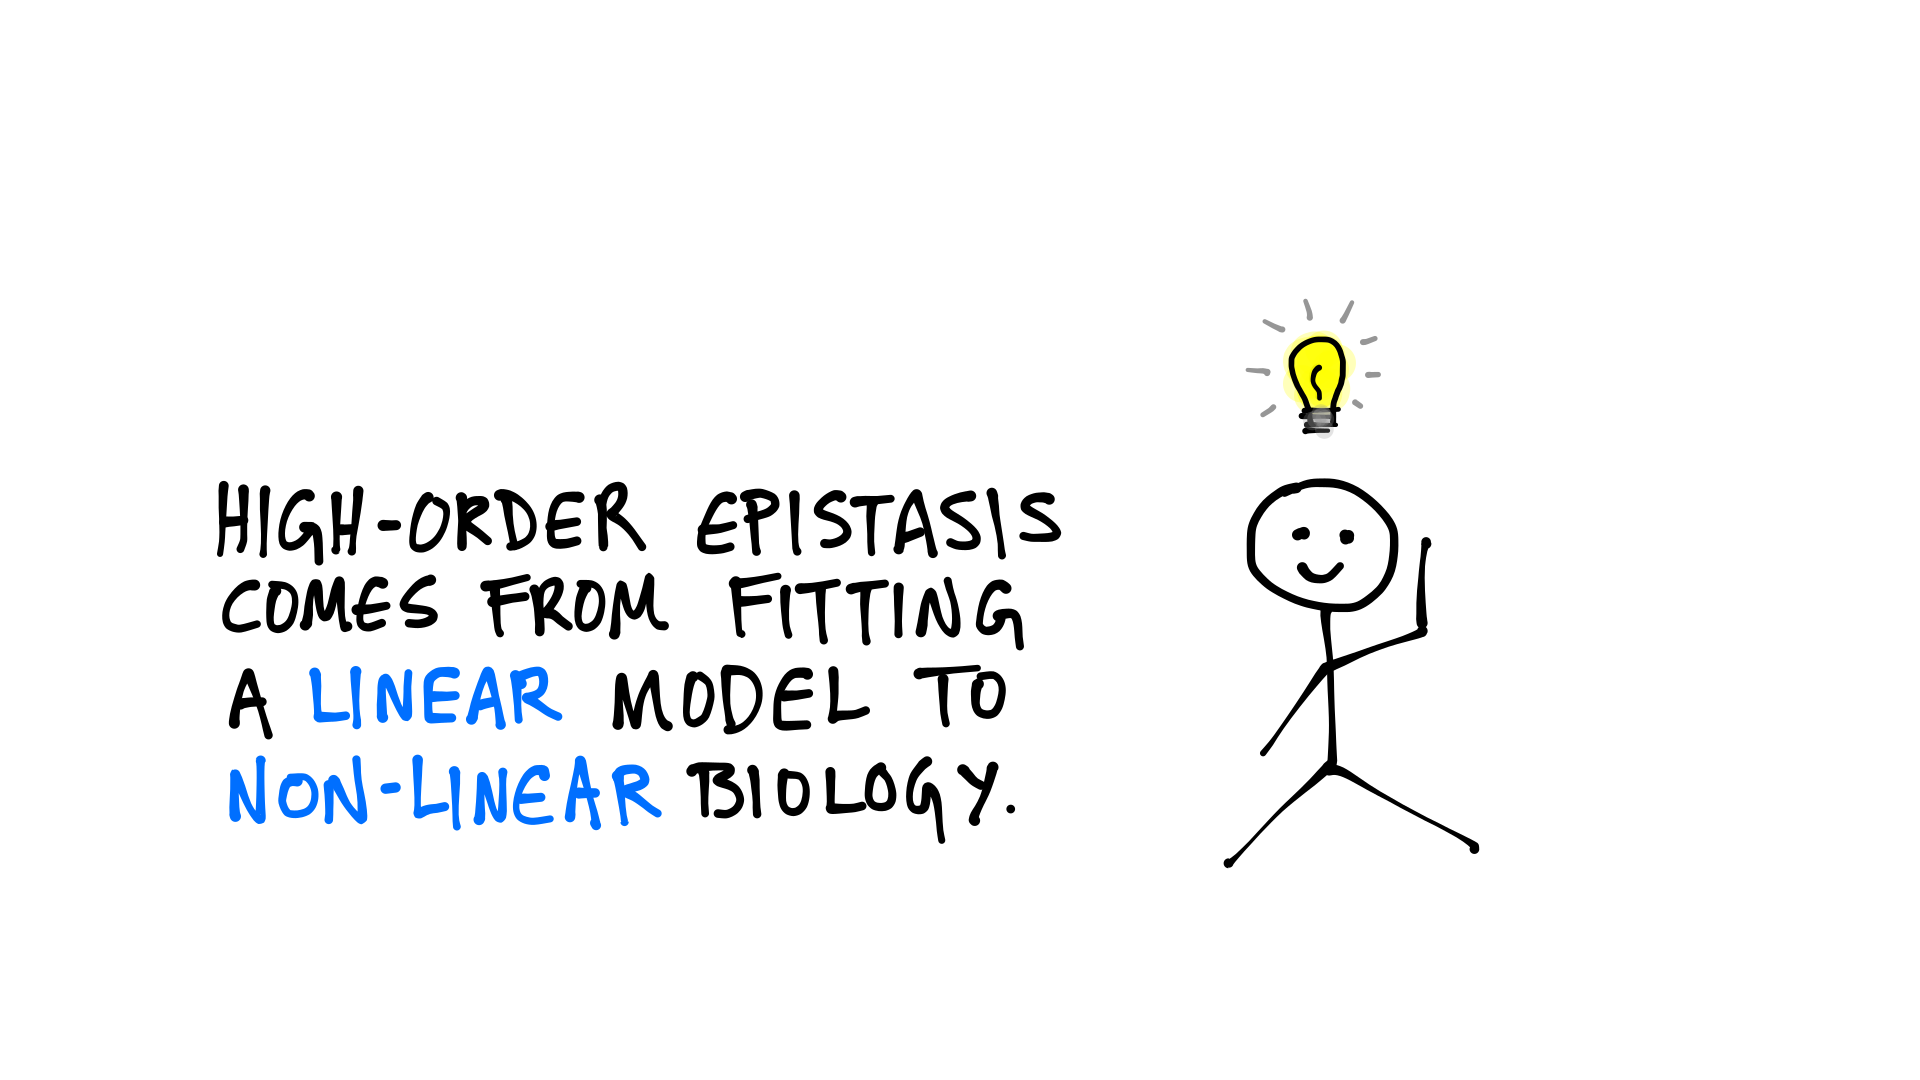 HIGH-ORDER EPISTASIS
COMES FROM FITTING
A LINEAR MODEL TO
NON-LINEAR BIOLOGY.